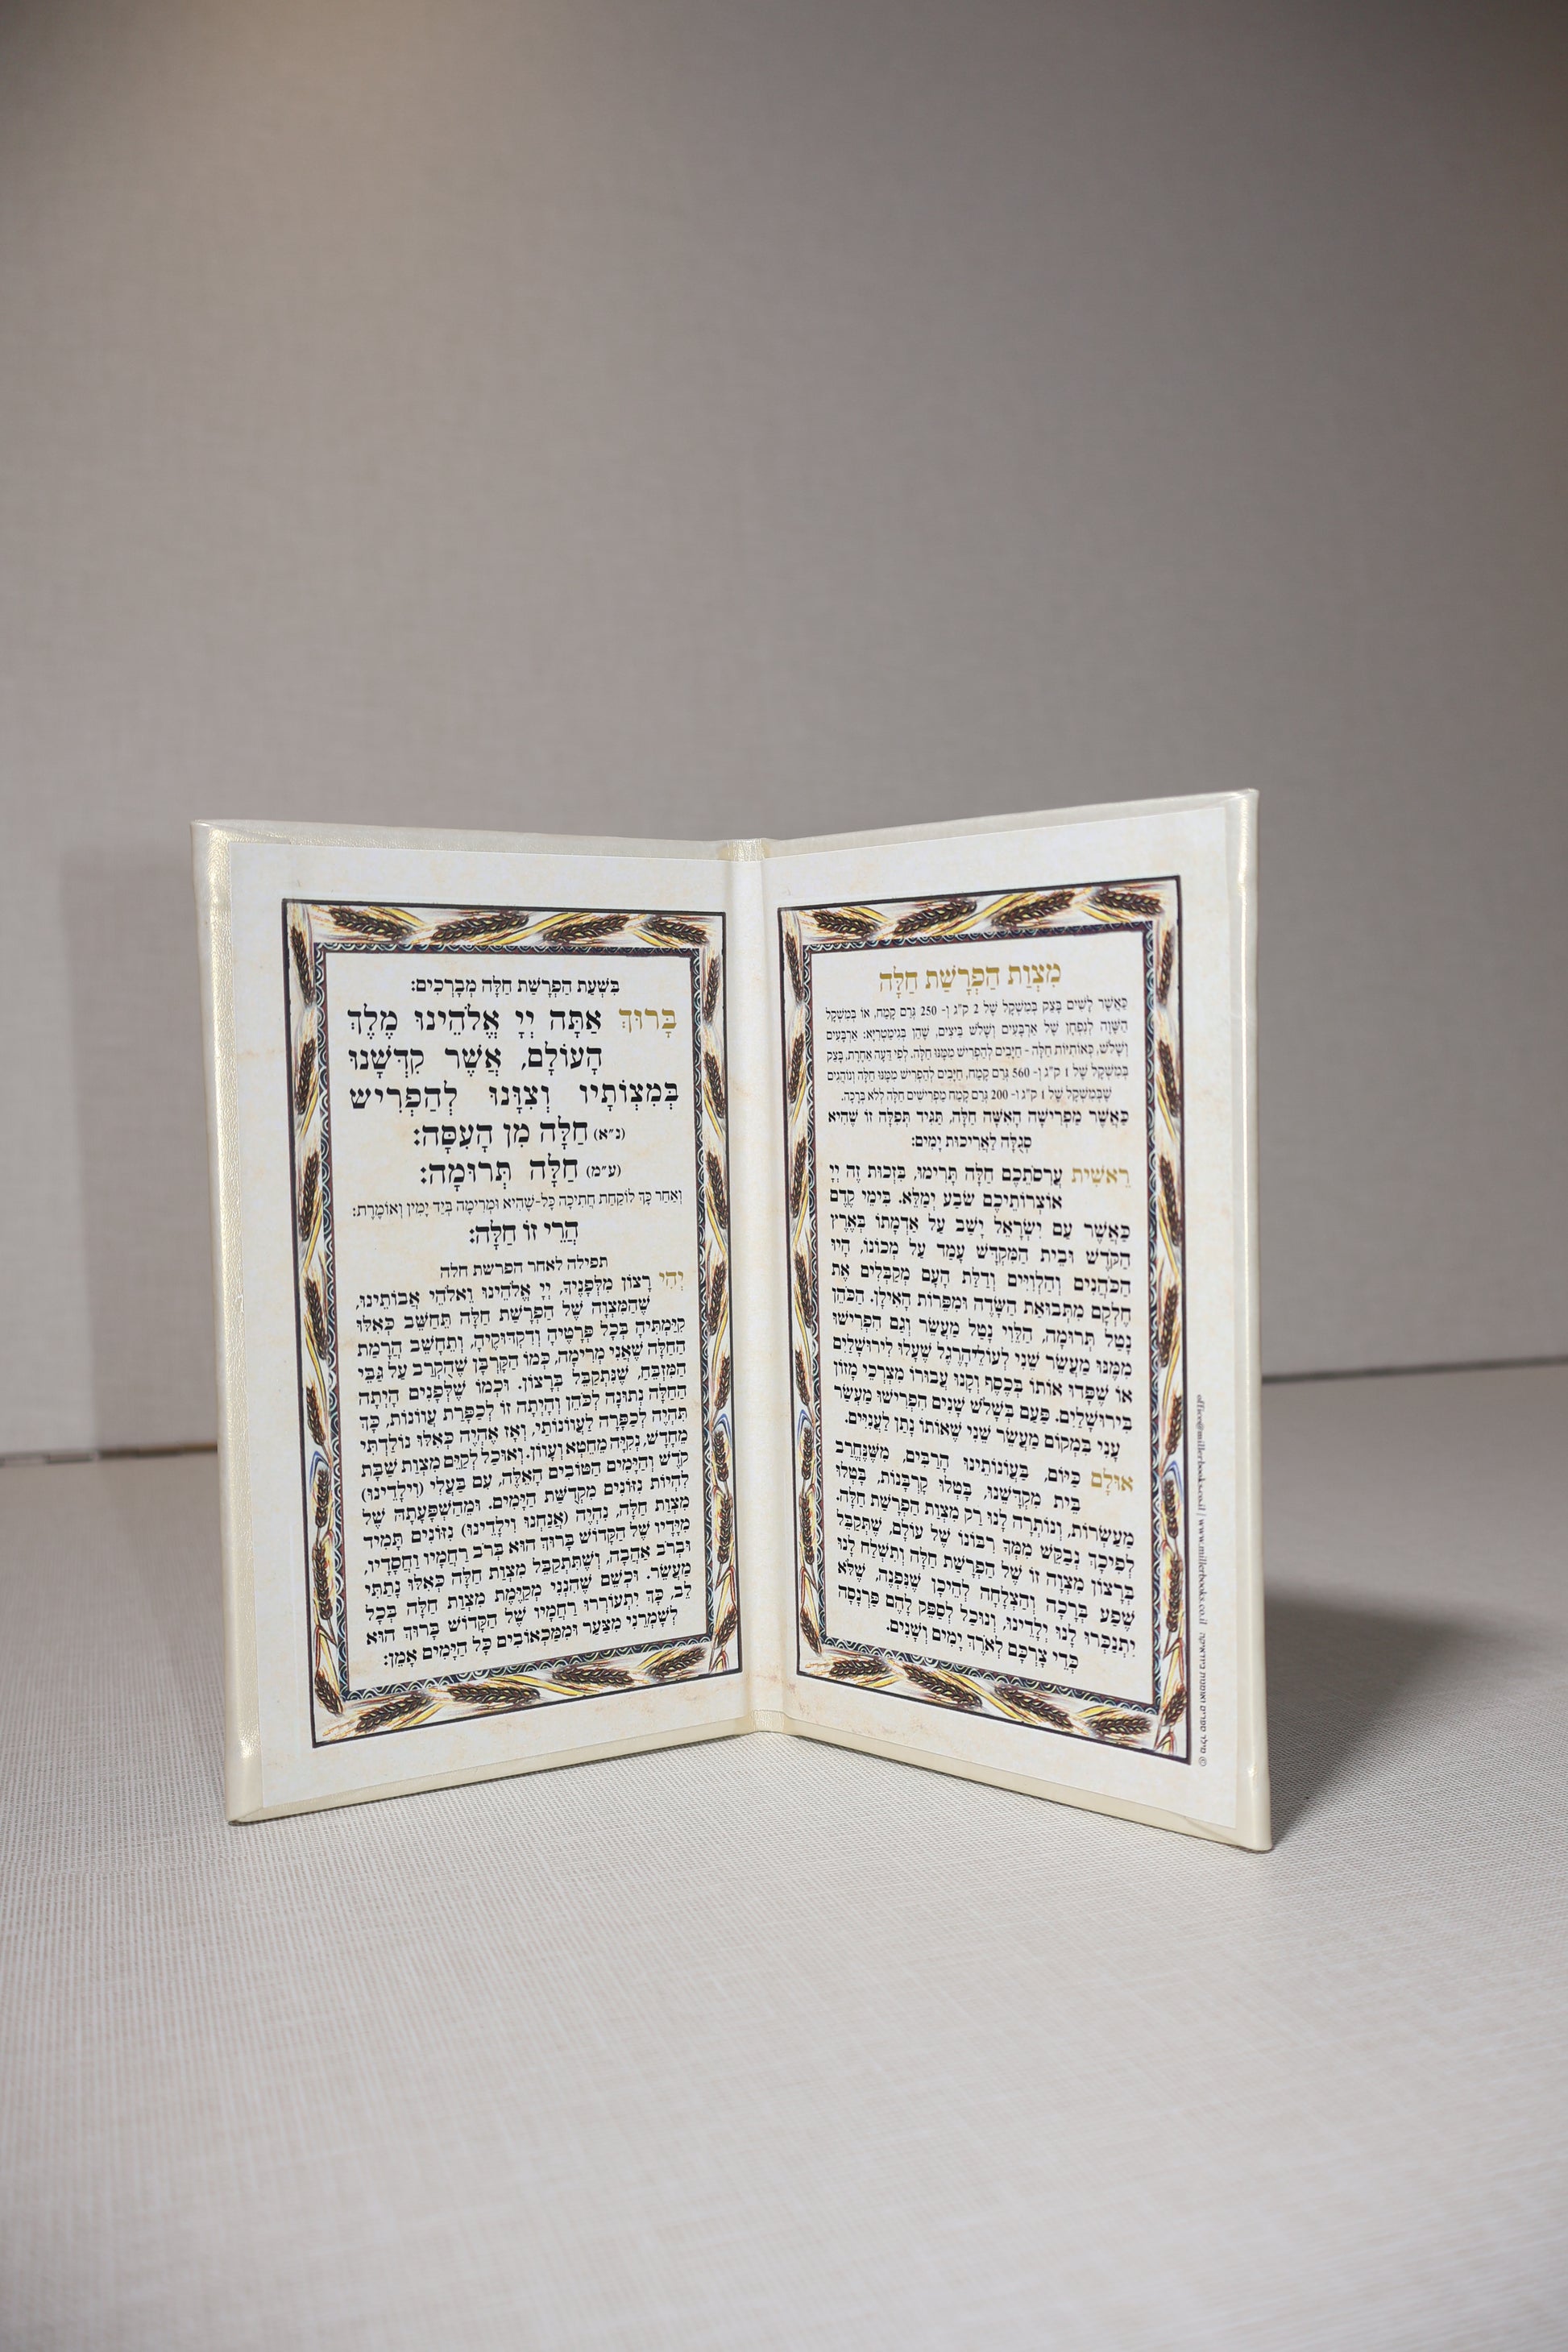 מִצְוַת הַפְרָשַׁת חַלָּה
כַּאֲשֶׁר לָשִׁים בָּצֵק בְּמִשְׁקָל שֶׁל 2 ק"ג ו- 250 גְּרַם קֶמַח, אוֹ בְּמִשְׁקָל
הַשָּׁוֶה לְנִפְחָן שֶׁל אַרְבָּעִים וְשָׁלֹשׁ בֵּיצִים, שֶׁהֵן בְּגִימַטְרִיָּא: אַרְבָּעִים
וְשָׁלֹשׁ, כְּאוֹתִיּוֹת חַלָּה - חַיָּבִים לְהַפְרִישׁ מִמֶּנּוּ חַלָּה. לְפִי דֵּעָה אַחֶרֶת, בָּצֵק
בְּמִשְׁקָל שֶׁל 1 ק"ג ו- 560 גְּרַם קֶמַח, חַיָּבִים לְהַפְרִישׁ מִמֶּנּוּ חַלָּה וְנוֹהֲגִים
שֶׁבְּמִשְׁקָל שֶׁל 1 ק"ג ו- 200 גְּרַם קֶמַח מַפְרִישִׁים חַלָּה לְלֹא בְּרָכָה.
כַּאֲשֶׁר מַפְרִישָׁה הָאִשָּׁה חַלָּה, תַּגִּיד תְּפִלָּה זוֹ שֶׁהִיא
סְגֻלָּה לַאֲרִיכוּת יָמִים:
רֵאשִׁית עֲרִסֹתֵכֶם חַלָּה תָּרִימוּ, בִּזְכוּת זֶה יְיָ
אוֹצְרוֹתֵיכֶם שֹבַע יְמַלֵּא. בִּימֵי קֶדֶם
כַּאֲשֶׁר עַם יִשְׂרָאֵל יָשַׁב עַל אַדְמָתוֹ בְּאֶרֶץ
הַקֹּדֶשׁ וּבֵית הַמִּקְדָּשׁ עָמַד עַל מְכוֹנוֹ, הָיוּ
הַכֹּהֲנִים וְהַלְוִיִּים וְדַלַּת הָעָם מְקַבְּלִים אֶת
חֶלְקָם מִתְּבוּאַת הַשָּׂדֶה וּמִפֵּרוֹת הָאִילָן. הַכֹּהֵן
נָטַל תְּרוּמָה, הַלֵּוִי נָטַל מַעֲשֵׂר וְגַם הִפְרִישׁוּ
מִמֶּנּוּ מַעֲשֵׂר שֵׁנִי לְעוֹלֵי־הָרֶגֶל שֶׁעָלוּ לִירוּשָׁלַיִם
אוֹ שֶׁפָּדוּ אוֹתוֹ בְּכֶסֶף וְקָנוּ עֲבוּרוֹ מִצְרְכֵי מָזוֹן
בִּירוּשָׁלַיִם. פַּעַם בְּשָׁלֹשׁ שָׁנִים הִפְרִישׁוּ מַעֲשֵׂר
עָנִי בִּמְקוֹם מַעֲשֵׂר שֵׁנִי שֶׁאוֹתוֹ נָתַן לַעֲנִיִּים.
אוּלָם כַּיּוֹם, בַּעֲוֹנוֹתֵינוּ הָרַבִּים, מִשֶּׁנֶּחֱרַב
בֵּית מִקְדָּשֵׁנוּ, בָּטְלוּ קָרְבָּנוֹת, בָּטְלוּ
מַעַשְׂרוֹת, וְנוֹתְרָה לָנוּ רַק מִצְוַת הַפְרָשַׁת חַלָּה.
לְפִיכָךְ נְבַקֵּשׁ מִמְּךָ רִבּוֹנוֹ שֶׁל עוֹלָם, שֶׁתְּקַבֵּל
בְּרָצוֹן מִצְוָה זוֹ שֶׁל הַפְרָשַׁת חַלָּה וְתִשְׁלַח לָנוּ
שֶׁפַע בְּרָכָה וְהַצְלָחָה לְהֵיכָן שֶׁנִּפְנֶה, שֶׁלֹּא
יִתְנַכְּרוּ לָנוּ יְלָדֵינוּ, וְנוּכַל לְסַפֵּק לָהֶם פַּרְנָסָה
כְּדֵי צָרְכָּם לְאֹרֶךְ יָמִים וְשָׁנִים.
© מילר ספרים ואומנות ביודאיקה office@millerbook.co.il | www.millerbooks.co.il
בִּשְׁעַת הַפְרָשַׁת חַלָּה מְבָרְכִים:
בָּרוּךְ אַתָּה יְיָ אֱלֹהֵינוּ מֶלֶךְ
הָעוֹלָם, אֲשֶׁר קִדְּשָׁנוּ
בְּמִצְוֹתָיו וְצִוָּנוּ לְהַפְרִישׁ
(נ"א) חַלָּה מִן הָעִסָּה:
(ע"מ) חַלָּה תְּרוּמָה:
וְאַחַר כָּךְ לוֹקַחַת חֲתִיכָה כָּל-שֶׁהִיא וּמְרִימָה בְּיַד יָמִין וְאוֹמֶרֶת:
הֲרֵי זוֹ חַלָּה:
תפילה לאחר הפרשת חלה
יְהִי רָצוֹן מִלְּפָנֶיךָ, יְיָ אֱלֹהֵינוּ וֵאלֹהֵי אֲבוֹתֵינוּ,
שֶׁהַמִּצְוָה שֶׁל הַפְרָשַׁת חַלָּה תֵּחָשֵׁב כְּאִלּוּ
קִיַּמְתִּיהָ בְּכָל פְּרָטֶיהָ וְדִקְדּוּקֶיהָ, וְתֵחָשֵׁב הֲרָמַת
הַחַלָּה שֶׁאֲנִי מְרִימָה, כְּמוֹ הַקָּרְבָּן שֶׁהֻקְרַב עַל גַּבֵּי
הַמִּזְבֵּחַ, שֶׁנִּתְקַבֵּל בְּרָצוֹן. וּכְמוֹ שֶׁלְּפָנִים הָיְתָה
הַחַלָּה נְתוּנָה לַכֹּהֵן וְהָיְתָה זוֹ לְכַפָּרַת עֲווֹנוֹת, כָּךְ
תִּהְיֶה לְכַפָּרָה לַעֲווֹנוֹתַי, וְאָז אֶהְיֶה כְּאִלּוּ נוֹלַדְתִּי
מֵחָדָשׁ, נְקִיָּה מֵחֵטְא וְעָווֹן. וְאוּכַל לְקַיֵּם מִצְוַת שַׁבַּת
קֹדֶשׁ וְהַיָּמִים הַטּוֹבִים הָאֵלֶּה, עִם בַּעֲלִי (וִילָדֵינוּ)
לִהְיוֹת נִזּוֹנִים מִקְּדֻשַּׁת הַיָּמִים. וּמֵהַשְׁפָּעָתָהּ שֶׁל
מִצְוַת חַלָּה, נִהְיֶה (אֲנַחְנוּ וִילָדֵינוּ) נִזּוֹנִים תָּמִיד
מִיָּדָיו שֶׁל הַקָּדוֹשׁ בָּרוּךְ הוּא בְּרֹב רַחֲמָיו וַחֲסָדָיו,
וּבְרֹב אַהֲבָה, וְשֶׁתִּתְקַבֵּל מִצְוַת חַלָּה כְּאִלּוּ נָתַתִּי
מַעֲשֵׂר. וּכְשֵׁם שֶׁהִנְנִי מְקַיֶּמֶת מִצְוַת חַלָּה בְּכָל
לֵב, כָּךְ יִתְעוֹרְרוּ רַחֲמָיו שֶׁל הַקָּדוֹשׁ בָּרוּךְ הוּא
לְשָׁמְרֵנִי מִצַּעַר וּמִמַּכְאוֹבִים כָּל הַיָּמִים אָמֵן: